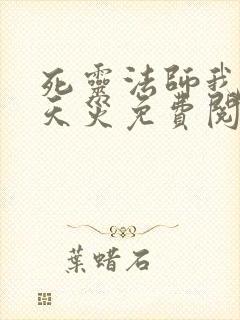 死靈法師我
天災免費閱
葉蜡石